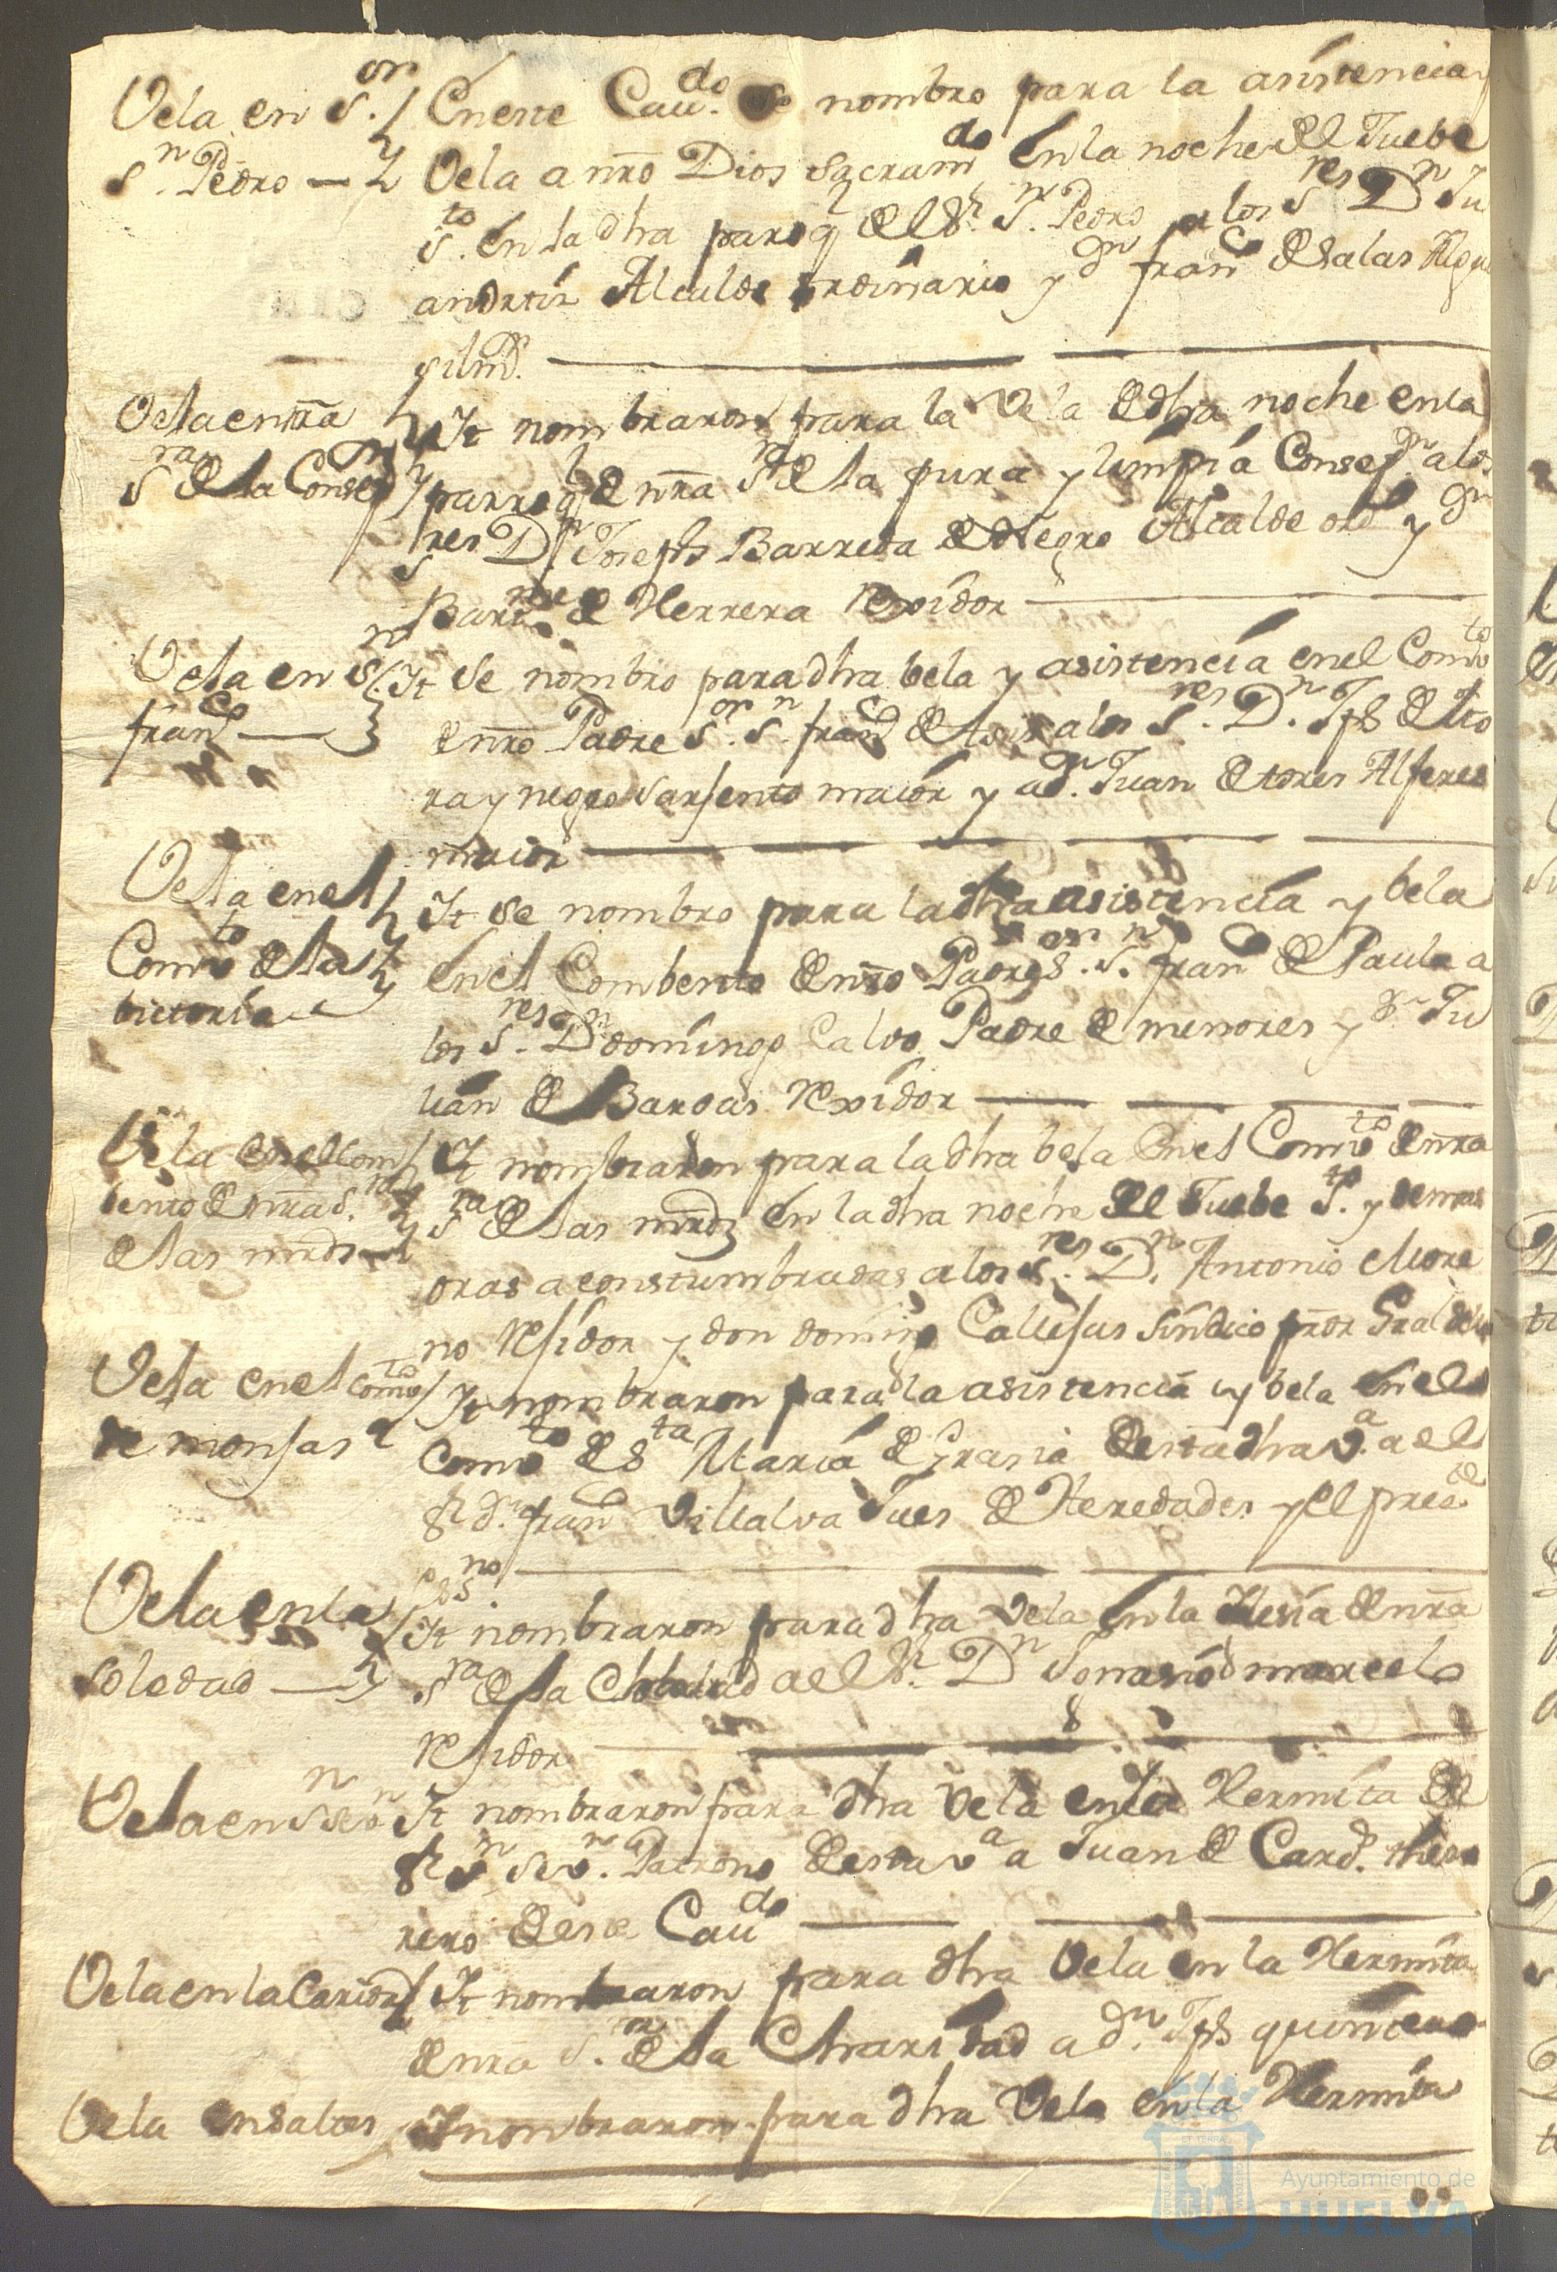 Vela en S.or
S.n Pedro
En este Cau.do se nombro para la asistencia y
Vela a nro Dios Sacram.do en la noche del Juebe
S.to en la dha parroq del Sr. S.n Pedro a los S.res D.n Ju
an ortiz Alcalde ordinario y dn fran.co de Salas Algua
sil m.r
Vela en nra
S.ra de la Consep.on
It nombraron para la Vela de dha noche en la
parroq de nra S.ra de la pura y limpia Consep.on a los
S.res D.n Joseph Barreda de Negro Alcalde ord.o y dn
Bar.me de Herrera Rexidor
Vela en S.n
fran.co
It se nombro para dha bela y asistencia en el Comv.to
de nro Padre S.or S.n fran.co de Asis a los S.res D.n Jph de To
ra y negro Sarjento maior y a d.n Juan de tores Alferes
maior
Vela en el
Comv.to de la
bictoria
It se nombro para la dha asistencia y bela
en el Combento de nro Padre S.or S.n fran.co de Paula a
los S.res D.n domingo Calvo Padre de menores y dn Ju
lian de Bargas Rexidor
Vela en el Com
bento de nra S.ra
de las mrds
It nombraron para la dha bela en el Comv.to de nra
S.ra de las mrds en la dha noche del Juebe S.to y demas
oras aconstumbradas a los S.res D.n Antonio More
no Rejidor y don domingo Callejas Sindico pror Gral de
Vela en el comv.to
de monjas
It nombraron para la asistencia y bela en el
Comv.to de S.ta Maria de Grasia de esta dha v.a a el
Sr d.n fran.co Villalva Jues de Heredades y el pres.te
es.no
Vela en la
Soledad
It nombraron para dha Vela en la Ilesia de nra
S.ra de la Soledad a el Sr. D.n Ignasio marcelo
Rejidor
Vela en S.n Seb.n
It nombraron para dha Vela en la Hermita de
Sr S.n Seb.n Patrono de esta v.a a Juan de Card.s theso
rero de este Cau.do
Vela en la Carida
It nombraron para dha Vela en la Hermita
de nra S.ra de la Charidad a d.n Jph quintero
Vela en Saltes
It nombraron para dha Vela en la Hermita
Ayuntamiento de
HUELVA